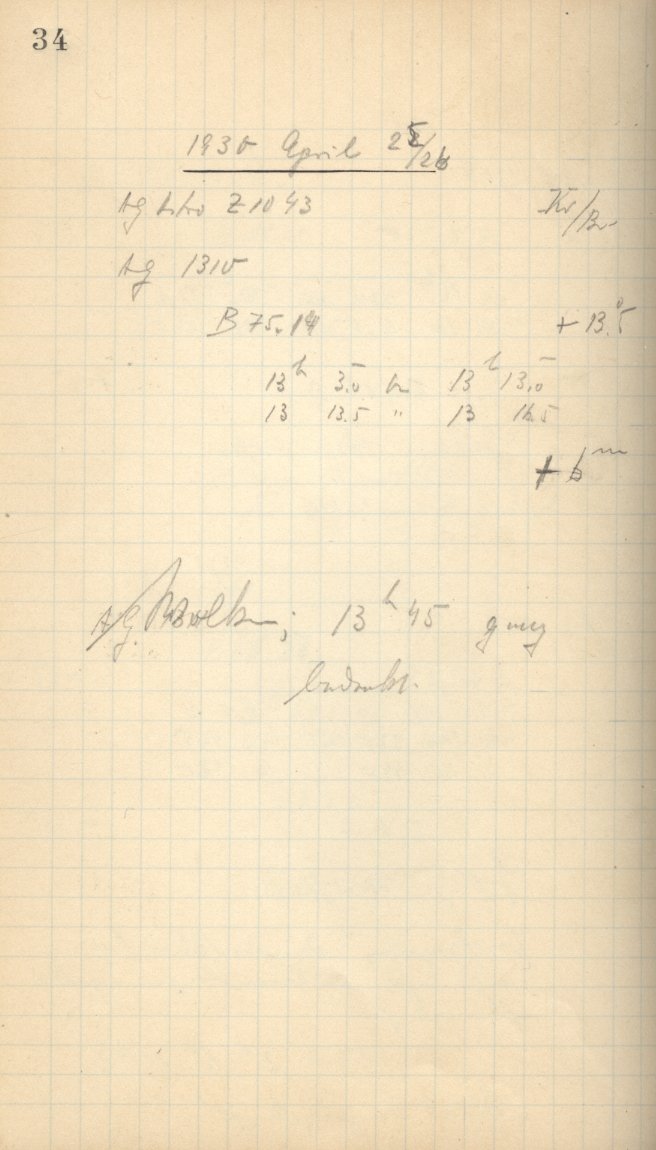 34
1930 April 25/26
Ag Z 1043 Kr/Br
Ag 1310
B 75. + 13°.5
13h 3.0 bis 13h 13.0
13 13.5 " 13 16.5
+ 6m
Wolken; 13h 45 ganz
bedeckt.